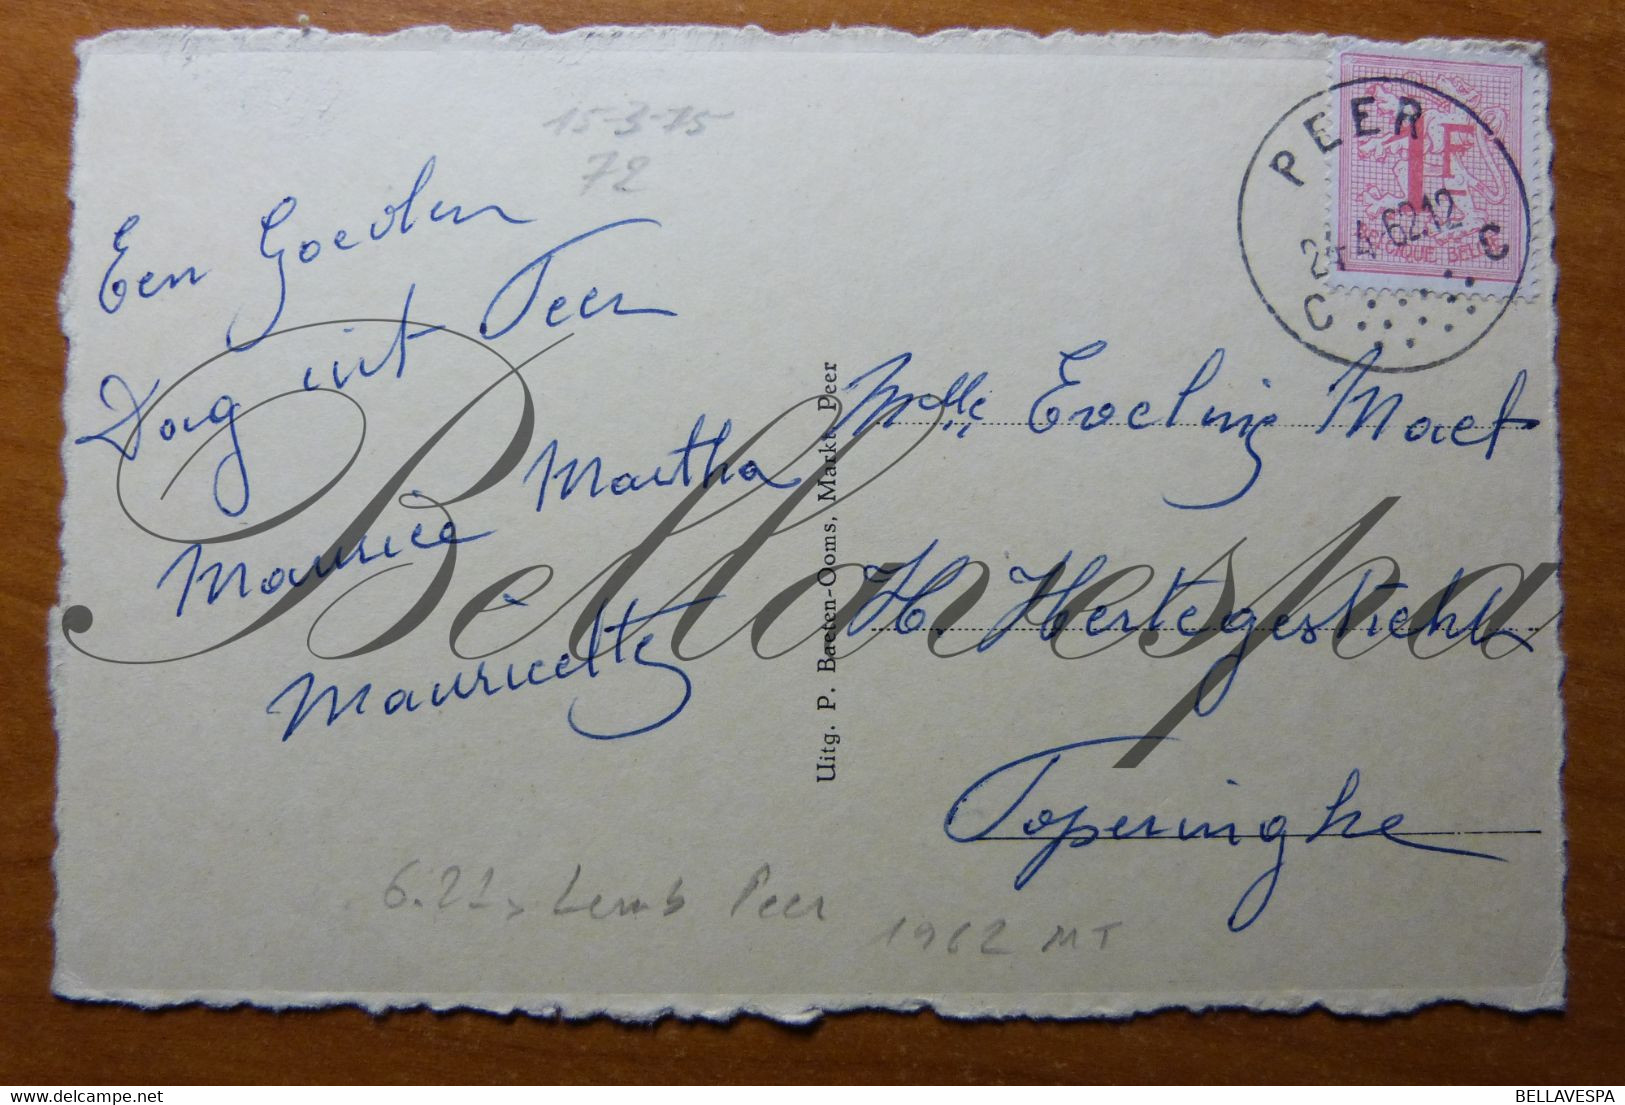 15-3-75
72
Een Goeden
Dag uit Peer
Maurice Martha
Mauricette
6.21 Lemb Peer
1962 MT
Uitg. P. Baeten-Ooms, Markt Peer
PEER
62.12
C C
1F
BELGIQUE BELGIE
Melle Eveling Maet
H. Hertegesticht
Poperinghe
Bellavespa
BELLAVESPA